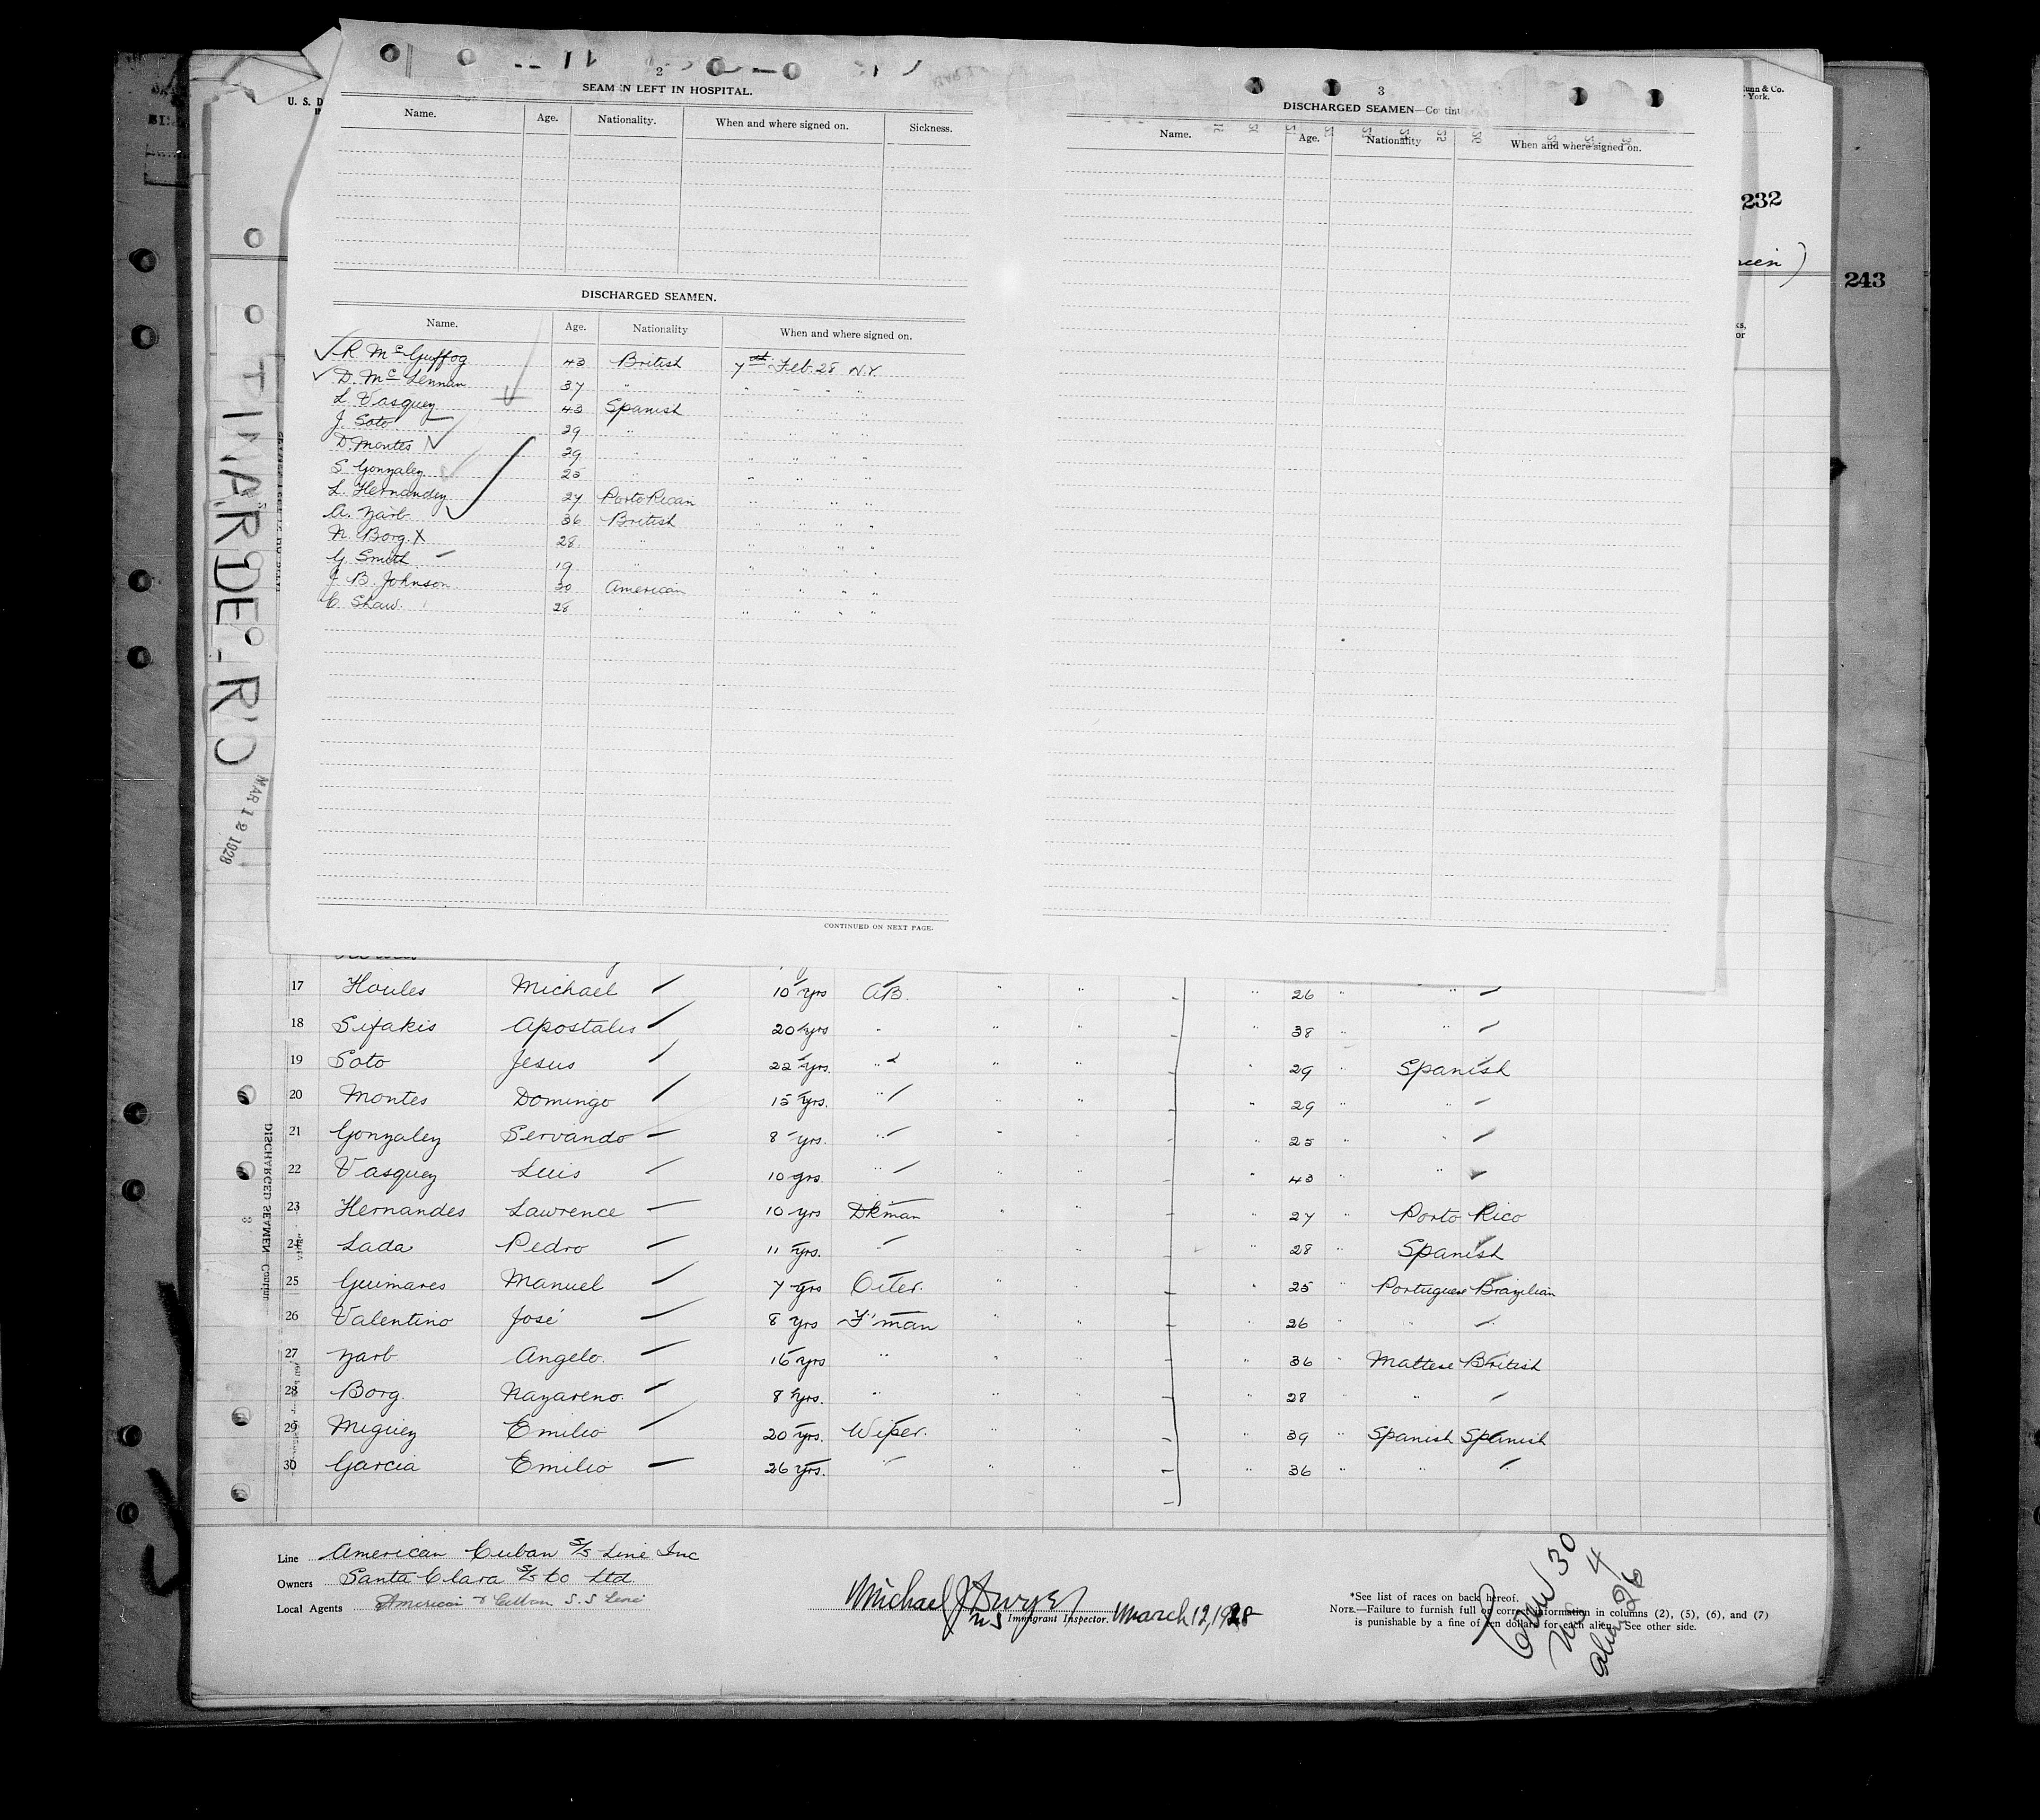 2
SEAMEN LEFT IN HOSPITAL.
Name. Age. Nationality. When and where signed on. Sickness.
DISCHARGED SEAMEN.
Name. Age. Nationality When and where signed on.
R. McGuffog 43 British 7th Feb. 28 N.Y.
D. McLennan 37 " " " " "
L. Vasquez 43 Spanish " " "
J. Soto 29 " " " "
D. Montes 29 " " " " "
S. Gonzalez 25 " " " " "
L. Hernandez 27 Porto Rican " " " "
A. Zarb 36 British " " " "
N. Borg. X 28 " " " "
G. Smith 19 " " " " "
J. B. Johnson 30 American " " " "
C. Shaw. 28 " " " " "
CONTINUED ON NEXT PAGE.
3
DISCHARGED SEAMEN—Contin
Name. Age. Nationality When and where signed on.
U. S. D
unn & Co.
York.
232
243
ks,
or
MAR 12 1928
DISCHARGED SEAMEN—Contin
17 Houles Michael 10 yrs AB. " " " 26 " "
18 Sifakis Apostalis 20 yrs " " " " 38 " "
19 Soto Jesus 22 yrs. " " " " 29 " Spanish
20 Montes Domingo 15 yrs. " " " " 29 " "
21 Gonzalez Servando 8 yrs. " " " " 25 " "
22 Vasquez Luis 10 yrs. " " " " 43 " "
23 Hernandes Lawrence 10 yrs Dkman " " " 27 " Porto Rico
24 Lada Pedro 11 yrs. " " " 28 " Spanish
25 Guimares Manuel 7 yrs Oiler. " " " 25 " Portuguese Brazilian
26 Valentino José 8 yrs F'man " " " 26 " "
27 Zarb Angelo. 16 yrs " " " " 36 " Maltese British
28 Borg. Nazareno. 8 yrs. " " " " 28 "
29 Miguez Emilio 20 yrs. Wiper. " " " 39 " Spanish Spanish
30 Garcia Emilio 26 yrs. " " " " 36 " " "
Line American Cuban S/S Line Inc
Owners Santa Clara S/S Co Ltd.
Local Agents American & Cuban S.S Line
Michael J Dwyer
Immigrant Inspector. March 12, 1928
*See list of races on back hereof.
NOTE.—Failure to furnish full or correct information in columns (2), (5), (6), and (7)
is punishable by a fine of ten dollars for each alien. See other side.
Crew 30
US 4
alien 26